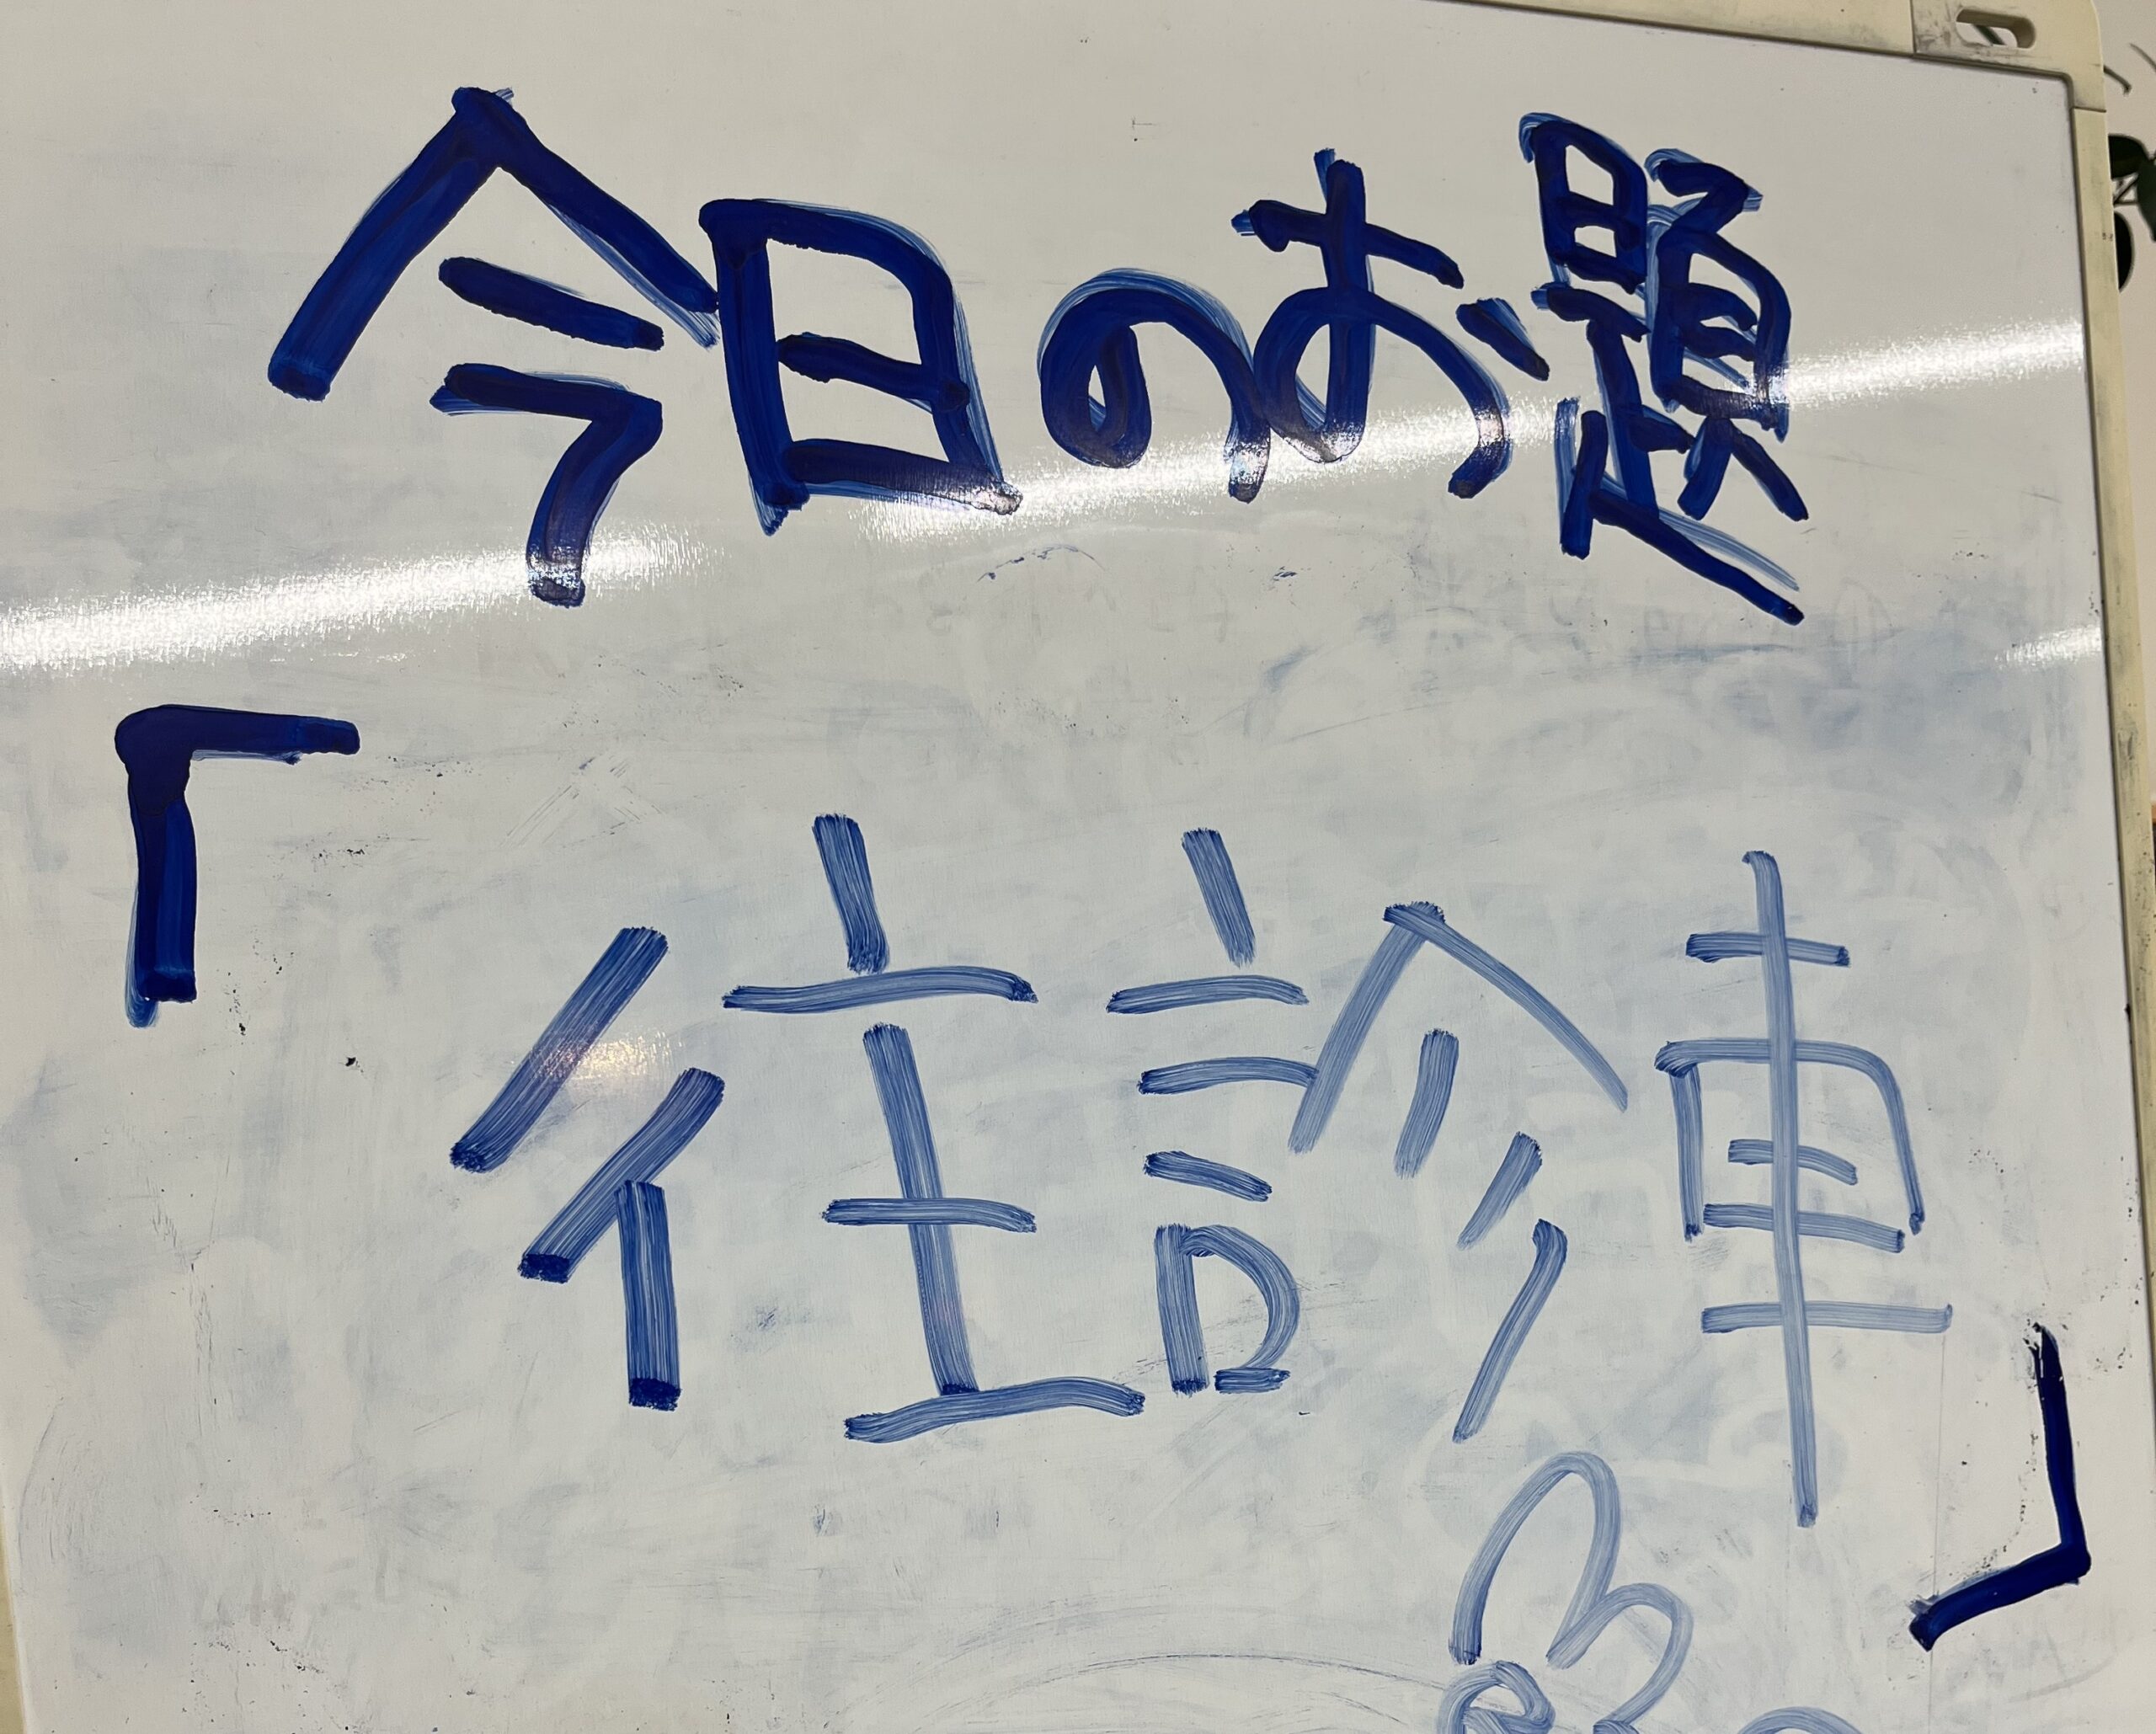 今日のお題
「往診車」